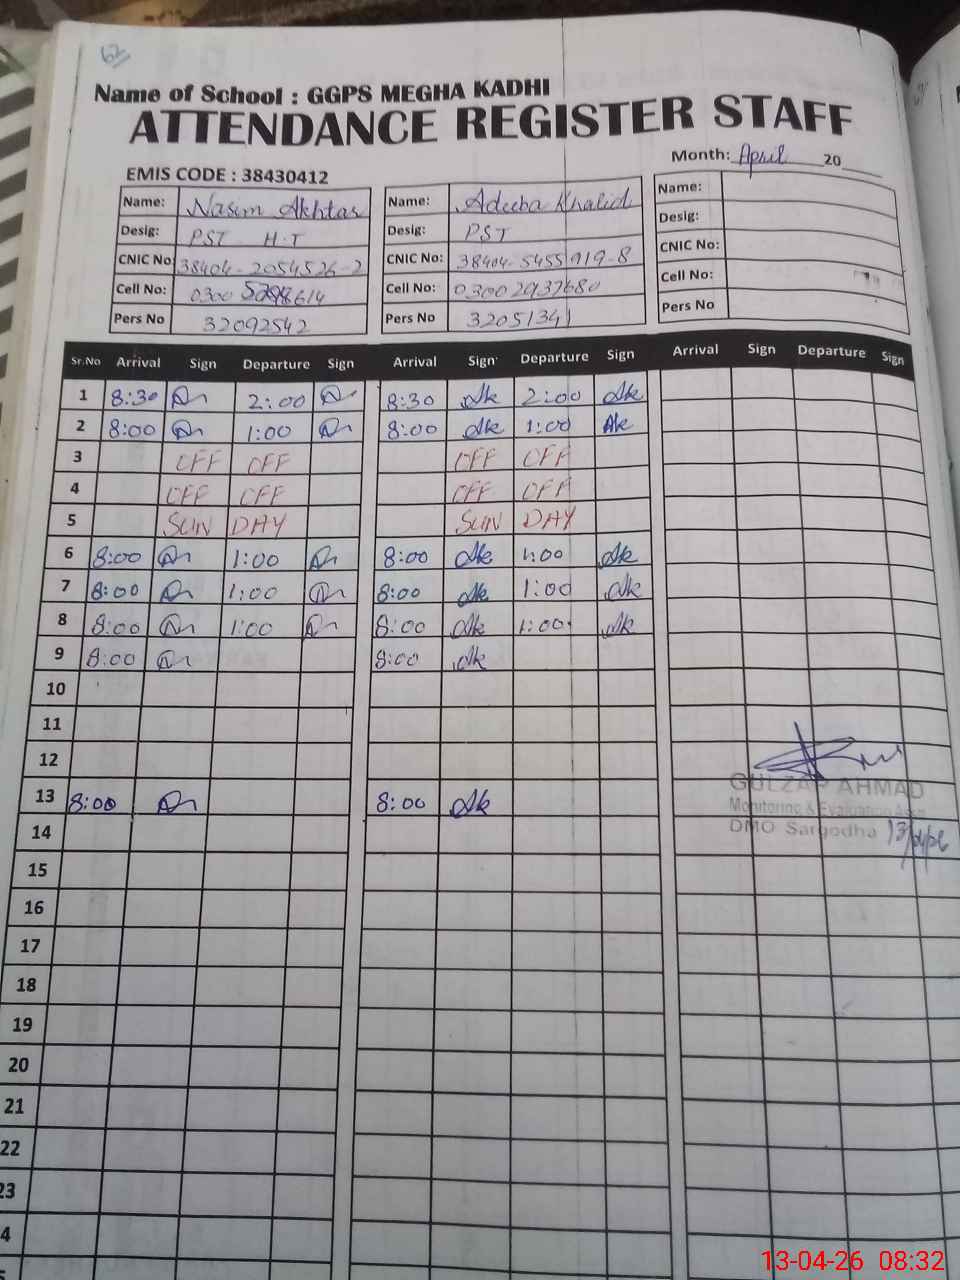 62
Name of School : GGPS MEGHA KADHI
ATTENDANCE REGISTER STAFF
Month: April 20
EMIS CODE : 38430412
Name: Nasim Akhtar Name: Adeeba Khalid Name:
Desig: PST H.T Desig: PST Desig:
CNIC No: 38404-2054526-2 CNIC No: 38404-5455919-8 CNIC No:
Cell No: 0300 Cell No: 03002937680 Cell No:
Pers No 32092542 Pers No 32051341 Pers No
Sr.No Arrival Sign Departure Sign Arrival Sign Departure Sign Arrival Sign Departure Sign
1 8:30 2:00 8:30 Ak 2:00 Ak
2 8:00 1:00 8:00 Ak 1:00 Ak
3 OFF OFF OFF OFF
4 OFF OFF OFF OFF
5 SUN DAY SUN DAY
6 8:00 1:00 8:00 Ak 1:00 Ak
7 8:00 1:00 8:00 Ak 1:00 Ak
8 8:00 1:00 8:00 Ak 1:00 Ak
9 8:00 8:00 Ak
10
11
12
13 8:00 8:00 Ak
GULZAR AHMAD
Monitoring & Evaluation
DMO Sargodha 13/04/26
14
15
16
17
18
19
20
21
22
23
4
13-04-26 08:32